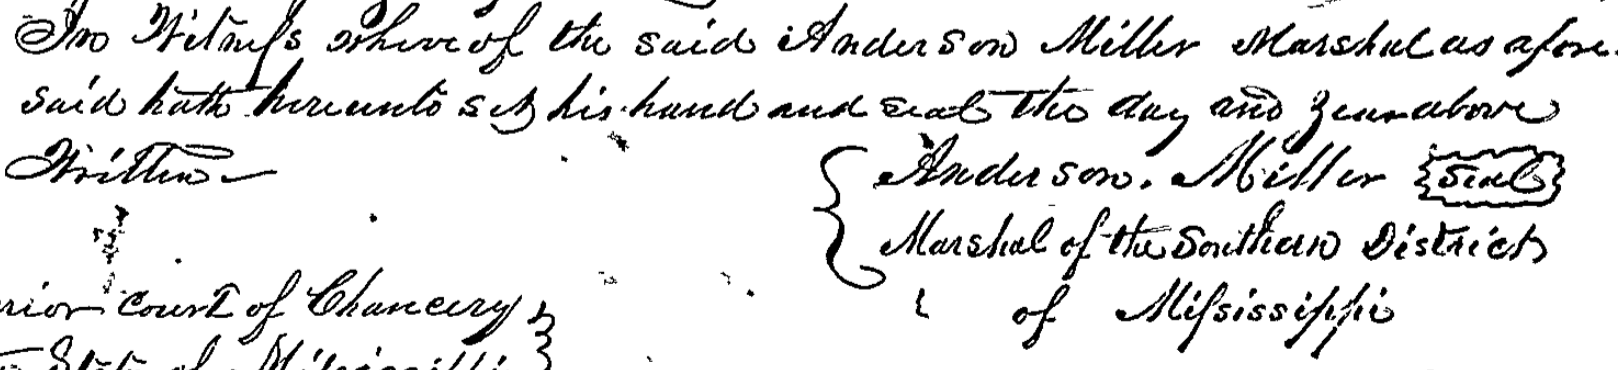 In Witness whereof the said Anderson Miller Marshal as afore-
said hath hereunto set his hand and seal the day and year above
Written
Anderson. Miller Seal
Marshal of the Southern District
of Mississippi
rior Court of Chancery
State of Mississippi